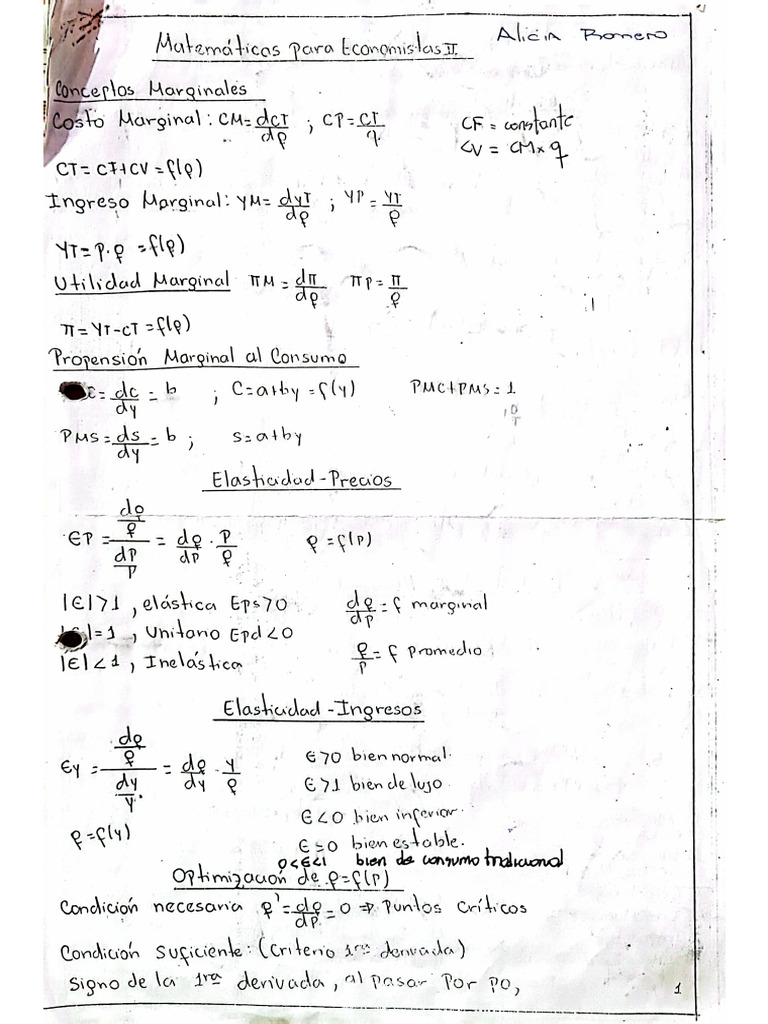 Matemáticas para Economistas II
Alicia Romero
Conceptos Marginales
Costo Marginal: CM = dCT/dq ; CP = CT/q
CF = constante
CV = CM x q
CT = CF + CV = f(q)
Ingreso Marginal: YM = dYT/dq ; YP = YT/q
YT = P·q = f(q)
Utilidad Marginal πM = dπ/dq πP = π/q
π = YT - CT = f(q)
Propensión Marginal al Consumo
C = dc/dy = b ; C = a + by = f(y) PMC + PMS = 1
PMS = ds/dy = b ; s = a + by
Elasticidad - Precios
ЄP = (dq/q)/(dP/P) = dq/dp · P/q q = f(p)
|Є| > 1, elástica Eps > 0 dq/dp = f marginal
| = 1, Unitario Epd < 0
|Є| < 1, Inelástica q/p = f promedio
Elasticidad - Ingresos
Єy = (dq/q)/(dy/y) = dq/dy · y/q
Є > 0 bien normal.
Є > 1 bien de lujo.
Є < 0 bien inferior.
q = f(y)
Є = 0 bien estable.
0 < Є < 1 bien de consumo tradicional
Optimización de q = f(p)
Condición necesaria q' = dq/dp = 0 ⇒ Puntos Críticos
Condición Suficiente: (Criterio 1ra derivada)
Signo de la 1ra derivada, al pasar por po,
1